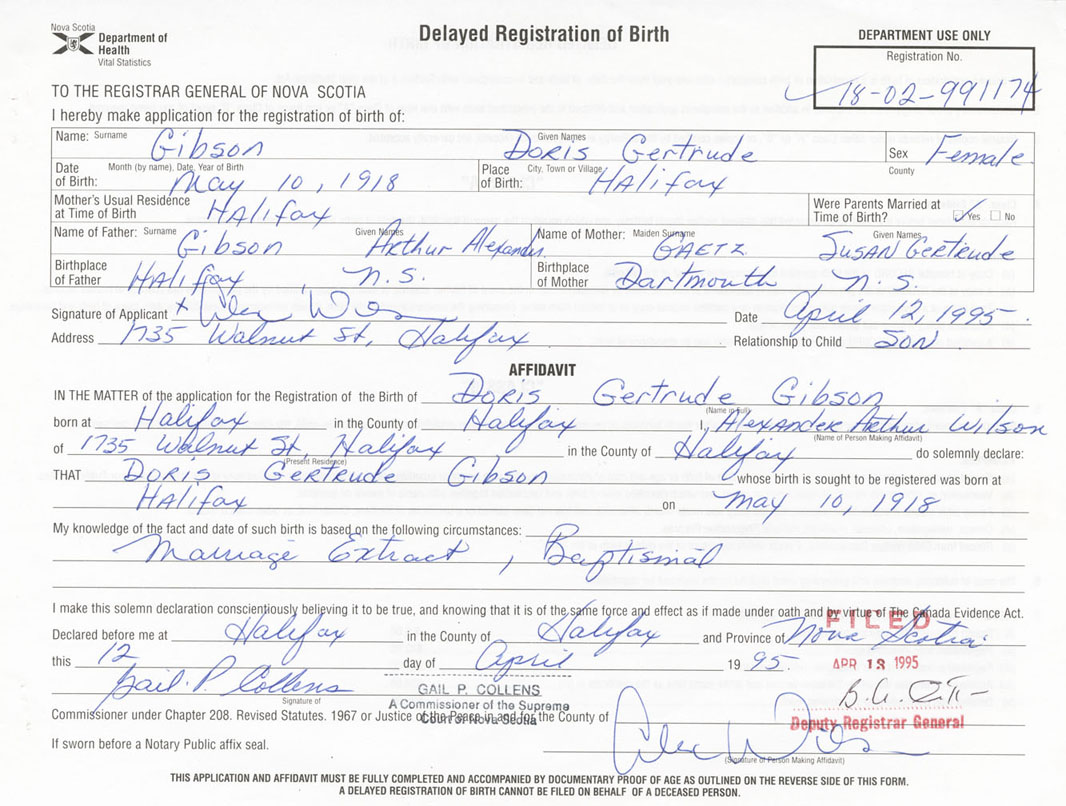 Nova Scotia
Department of
Health
Vital Statistics
Delayed Registration of Birth
DEPARTMENT USE ONLY
Registration No.
18-02-991174
TO THE REGISTRAR GENERAL OF NOVA SCOTIA
I hereby make application for the registration of birth of:
Name: Surname Gibson Given Names Doris Gertrude Sex Female
Date of Birth: Month (by name), Date, Year of Birth May 10, 1918 Place of Birth: City, Town or Village Halifax County
Mother's Usual Residence at Time of Birth Halifax Were Parents Married at Time of Birth? ✓ Yes No
Name of Father: Surname Gibson Given Names Arthur Alexander Name of Mother: Maiden Surname Gaetz Given Names Susan Gertrude
Birthplace of Father Halifax, N.S. Birthplace of Mother Dartmouth, N.S.
Signature of Applicant x Alex Wilson Date April 12, 1995
Address 1735 Walnut St, Halifax Relationship to Child Son
AFFIDAVIT
IN THE MATTER of the application for the Registration of the Birth of Doris Gertrude Gibson
(Name in Full)
born at Halifax in the County of Halifax I, Alexander Arthur Wilson
(Name of Person Making Affidavit)
of 1735 Walnut St, Halifax, in the County of Halifax do solemnly declare:
(Present Residence)
THAT Doris Gertrude Gibson whose birth is sought to be registered was born at
Halifax on May 10, 1918
My knowledge of the fact and date of such birth is based on the following circumstances:
Marriage Extract, Baptismal
I make this solemn declaration conscientiously believing it to be true, and knowing that it is of the same force and effect as if made under oath and by virtue of The Canada Evidence Act.
FILED
Declared before me at Halifax in the County of Halifax and Province of Nova Scotia
this 12 day of April 19 95.
APR 13 1995
Gail P. Collens
Signature of
GAIL P. COLLENS
A Commissioner of the Supreme
Court of Nova Scotia
Commissioner under Chapter 208. Revised Statutes. 1967 or Justice of the Peace in and for the County of
Deputy Registrar General
If sworn before a Notary Public affix seal.
Alex Wilson
(Signature of Person Making Affidavit)
THIS APPLICATION AND AFFIDAVIT MUST BE FULLY COMPLETED AND ACCOMPANIED BY DOCUMENTARY PROOF OF AGE AS OUTLINED ON THE REVERSE SIDE OF THIS FORM.
A DELAYED REGISTRATION OF BIRTH CANNOT BE FILED ON BEHALF OF A DECEASED PERSON.